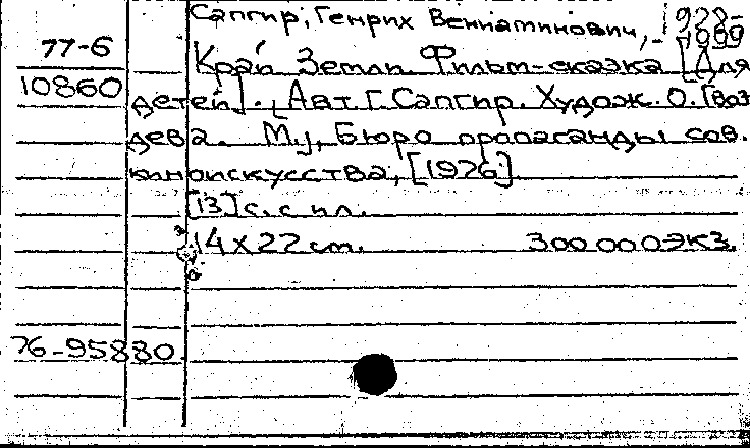 Сапгир, Генрих Вениаминович, 1928-1999
77-6
10860
Край Земли. Фильм-сказка [Для
детей]. [Авт. Г. Сапгир. Худож. О. Гвоз
дева. М.], Бюро пропаганды сов.
киноискусства, [1976]
[13] с. с ил.
14 х 22 см. 300 000 экз.
76-95880